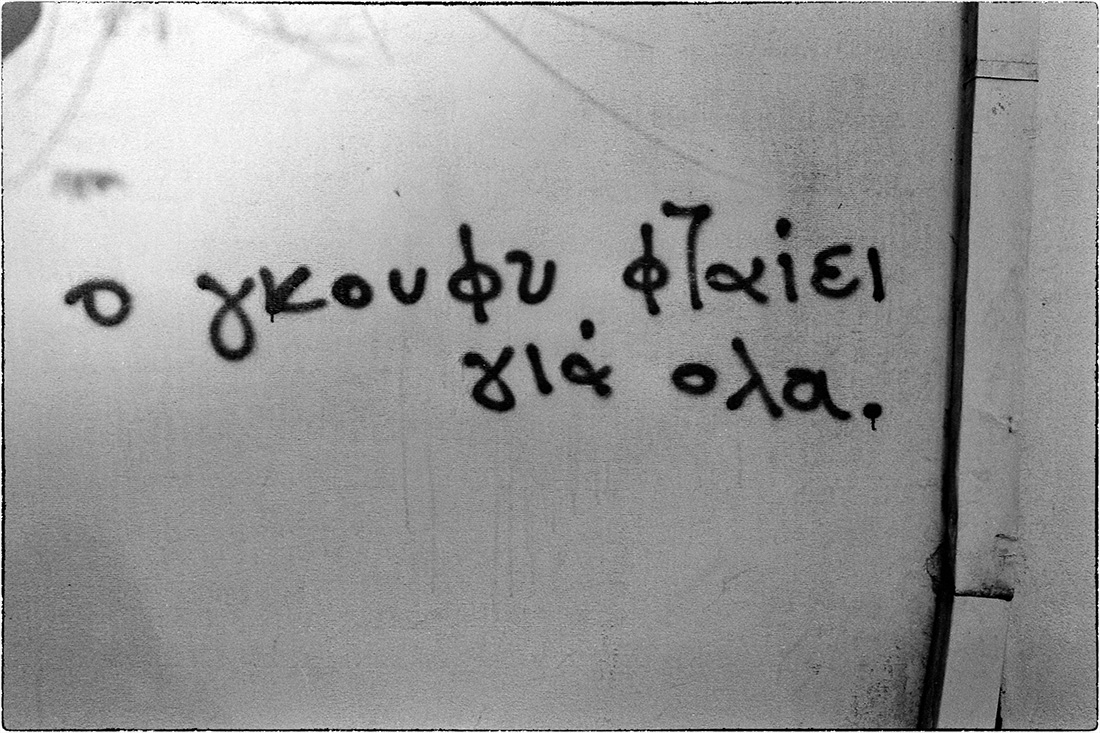 ο γκουφυ φταίει
γιά ολα.